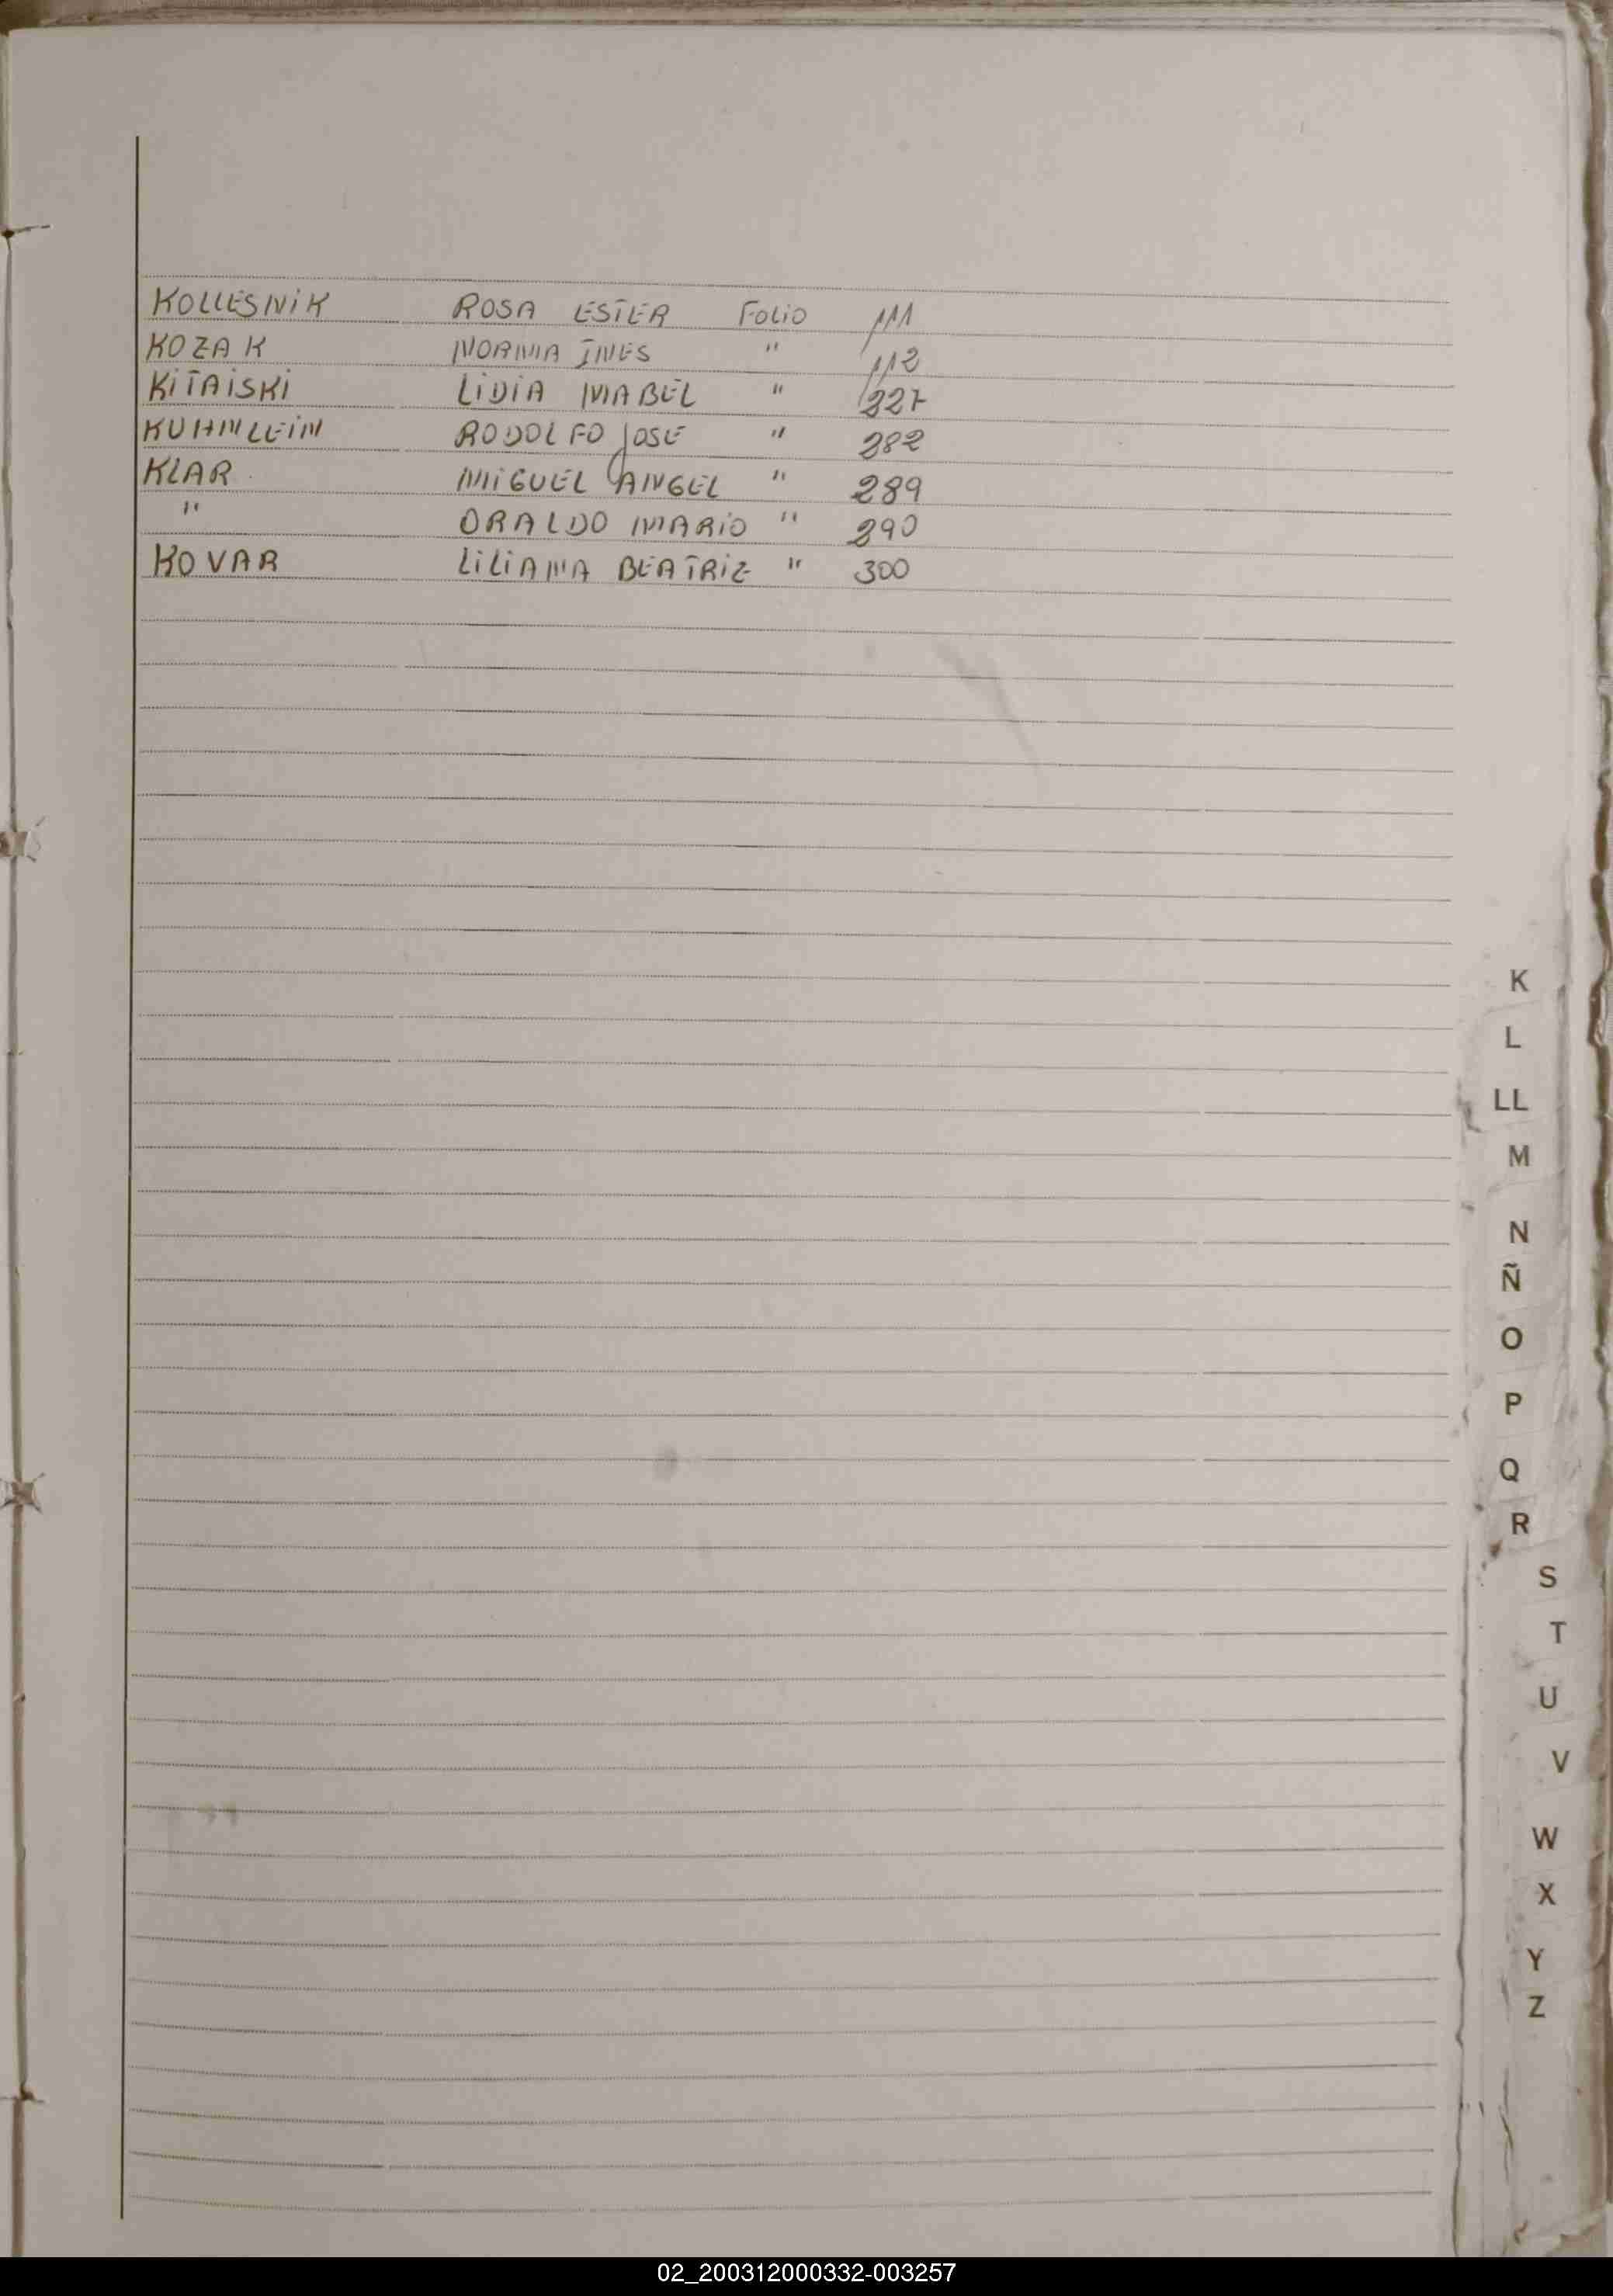 KOLLESNIK ROSA ESTER Folio 111
KOZAK NORMA INES " 112
KITAISKI LIDIA MABEL " 227
KUHNLEIN RODOLFO JOSE " 282
KLAR MIGUEL ANGEL " 289
" ORALDO MARIO " 290
KOVAR LILIANA BEATRIZ " 300
K
L
LL
M
N
Ñ
O
P
Q
R
S
T
U
V
W
X
Y
Z
02_200312000332-003257